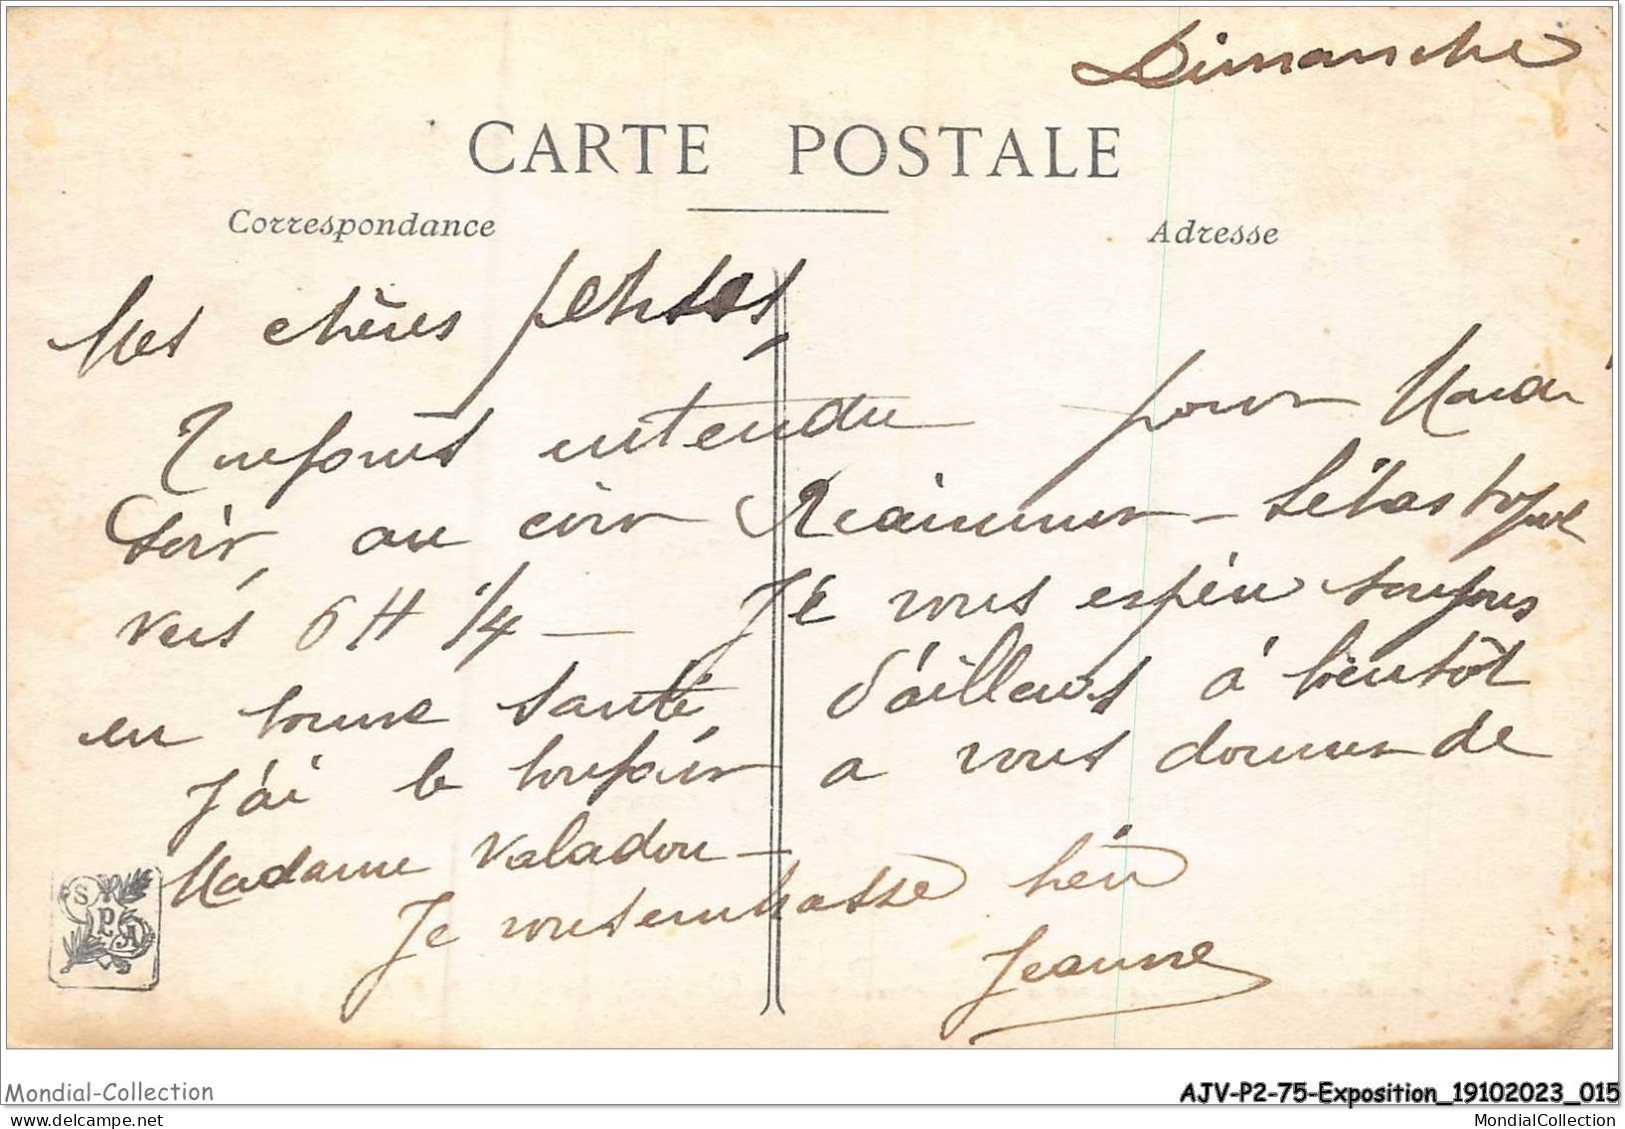 Dimanche
CARTE POSTALE
Correspondance
Adresse
Mes chères petites,
Toujours entendu pour Mardi
soir, au coin Réaumur - Sébastopol
vers 6 H 1/4 — Je vous espère toujours
en bonne santé, d'ailleurs à bientôt
J'ai le bonjour a vous donner de
Madame Valadou —
Je vous embrasse bien
Jeanne
S
P
A
Mondial-Collection
AJV-P2-75-Exposition_19102023_015
www.delcampe.net
MondialCollection